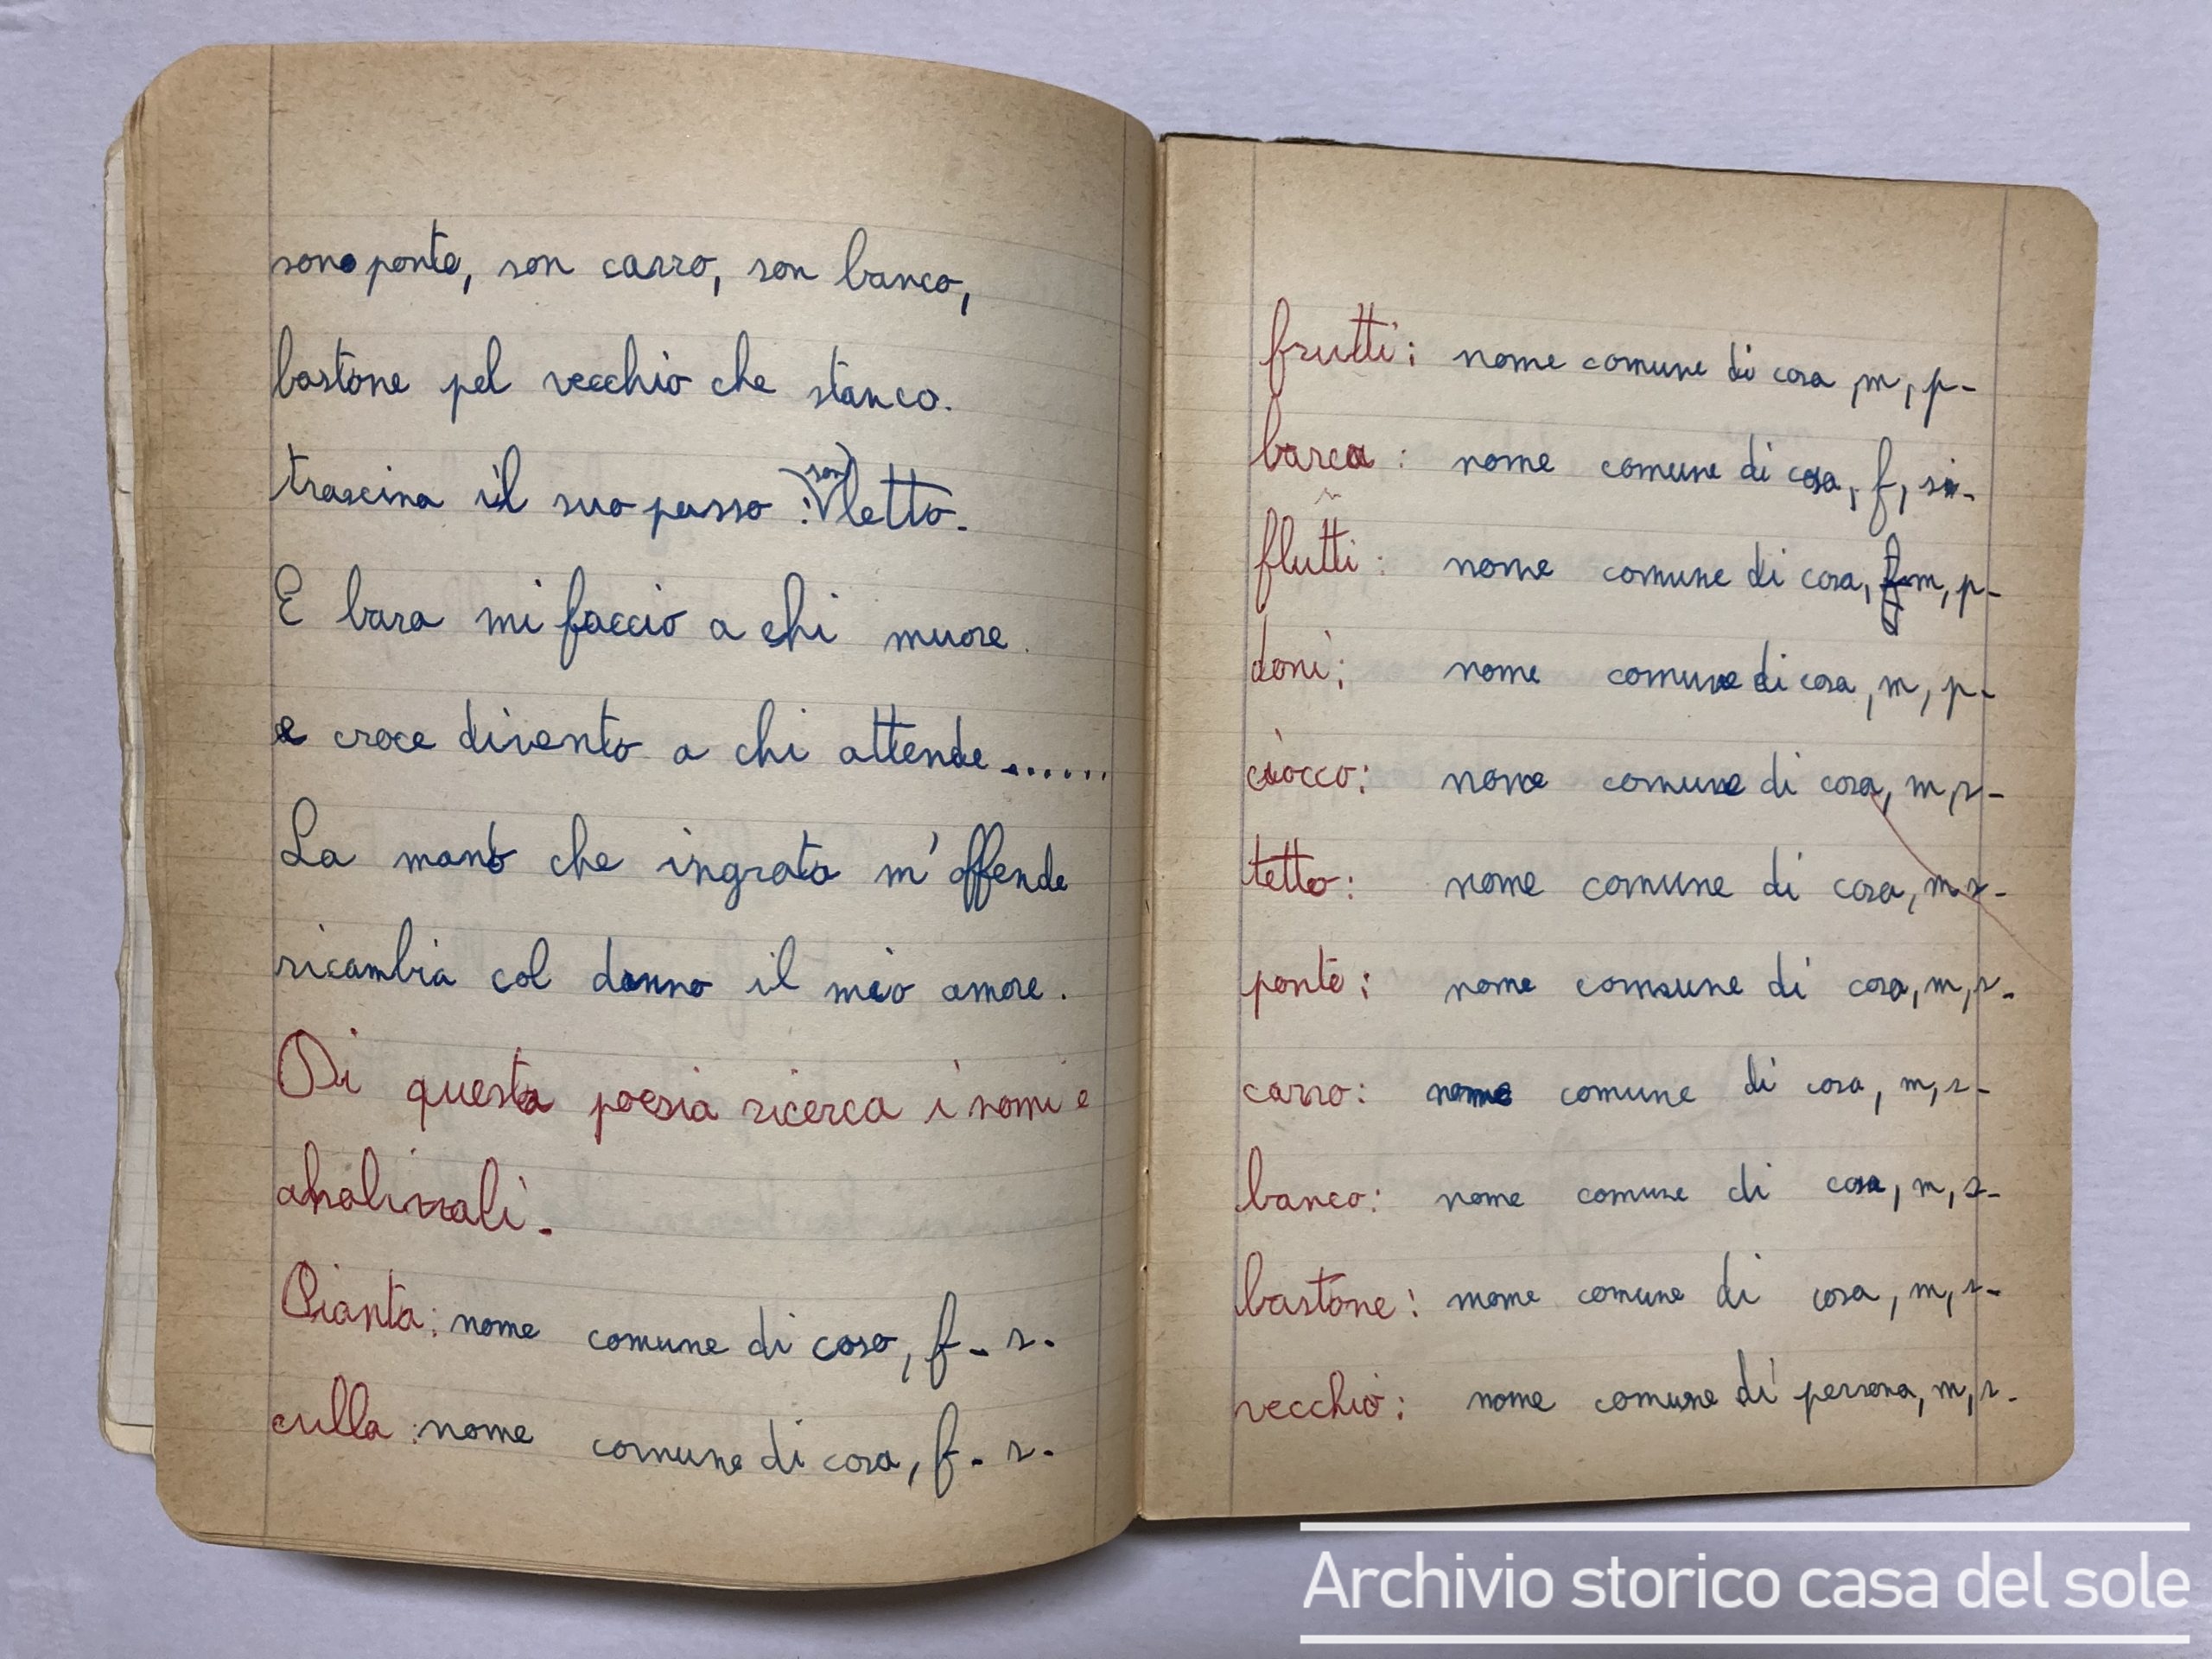 sono ponte, son carro, son banco,
bastone pel vecchio che stanco.
trascina il suo passo : son letto.
E bara mi faccio a chi muore.
e croce divento a chi attende......
La mano che ingrata m'offende
ricambia col danno il mio amore.
Di questa poesia ricerca i nomi e
analizzali.
Pianta: nome comune di cosa, f. s.
culla: nome comune di cosa, f. s.
frutti: nome comune di cosa, m, p-
barca: nome comune di cosa, f, s-
flutti: nome comune di cosa, m, p-
doni: nome comune di cosa, m, p-
ciocco: nome comune di cosa, m, s-
tetto: nome comune di cosa, m, s-
ponte: nome comune di cosa, m, s-
carro: nome comune di cosa, m, s-
banco: nome comune di cosa, m, s-
bastone: nome comune di cosa, m, s-
vecchio: nome comune di persona, m, s-
Archivio storico casa del sole